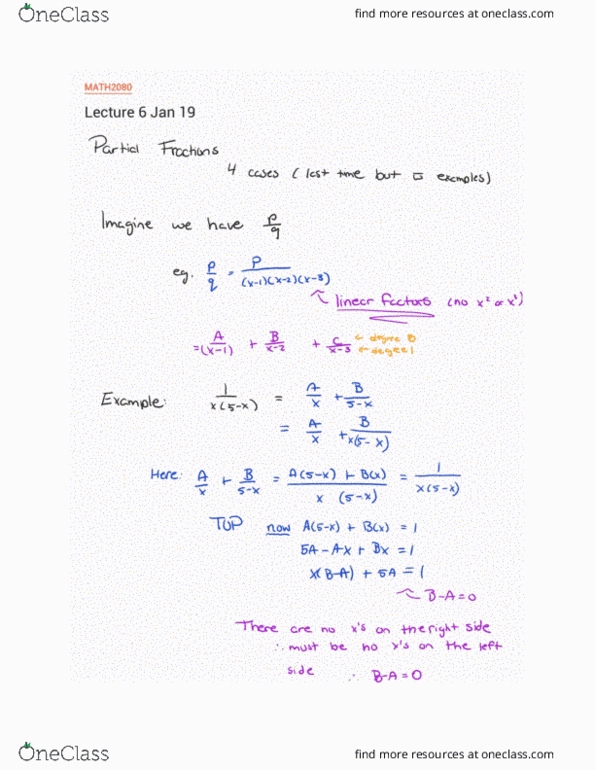 OneClass find more resources at oneclass.com
MATH2080
Lecture 6 Jan 19
Partial Fractions
4 cases (last time but examples)
Imagine we have p/q
eg. p/q = P/((x-1)(x-2)(x-3))
linear factors (no x² or x³)
= A/(x-1) + B/(x-2) + C/(x-3) ← degree 0 ← degree 1
Example: 1/(x(5-x)) = A/x + B/(5-x)
= A/x + B/(x(5-x))
Here: A/x + B/(5-x) = (A(5-x) + B(x))/(x (5-x)) = 1/(x(5-x))
TOP now A(5-x) + B(x) = 1
5A - Ax + Bx = 1
x(B-A) + 5A = 1
B-A=0
There are no x's on the right side
∴ must be no x's on the left
side ∴ B-A=0
OneClass find more resources at oneclass.com